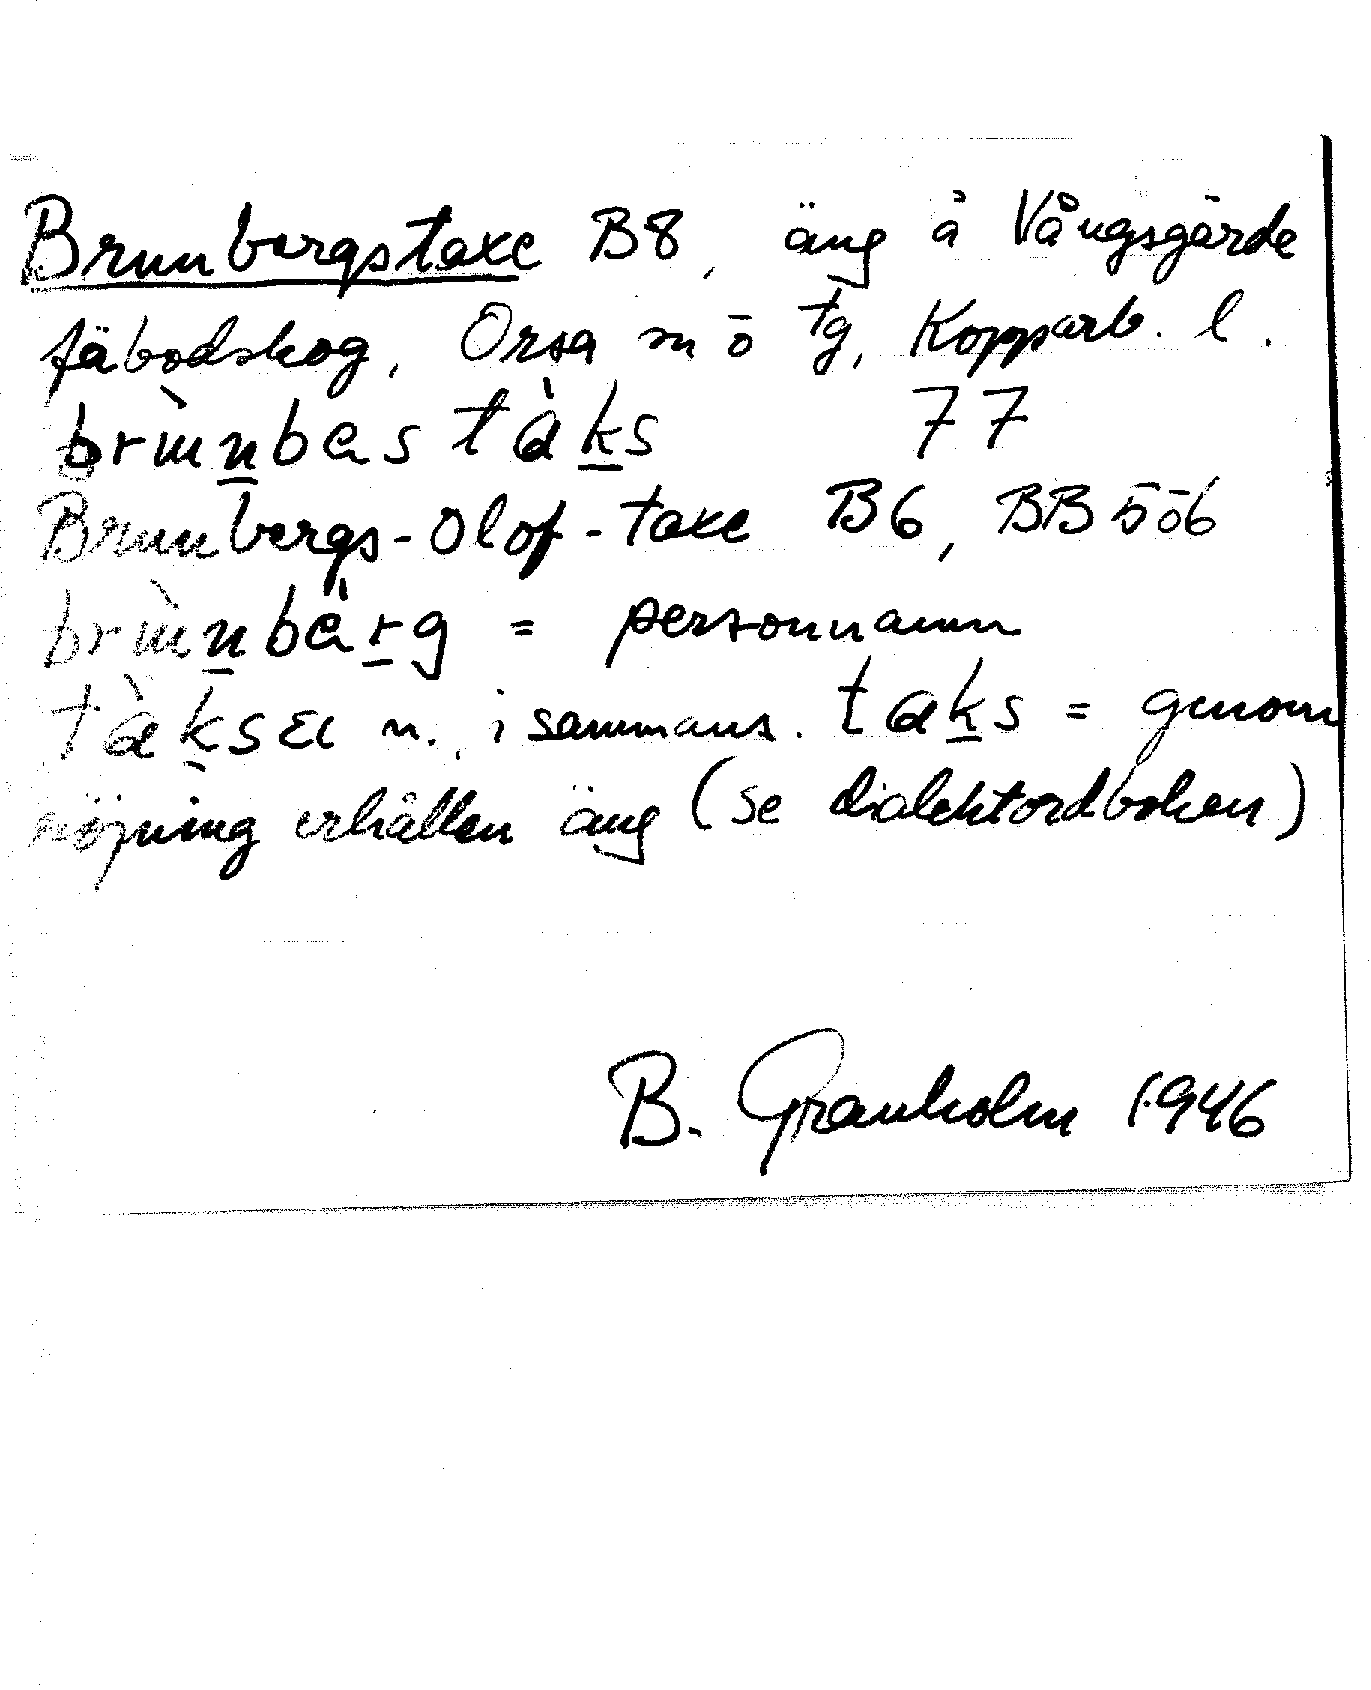 Brunbergstaxe B8, äng å Vångsgärde
fäbodskog, Orsa sn ö tg, Kopparb. l.
brùnbas tàks 77
Brunbergs-Olof-taxe B6, BB 5ö6
brùnbärg = personnamn
tàksæı n., i sammans. taks = genom
röjning erhållen äng (se dialektordboken)
B. Granholm 1946